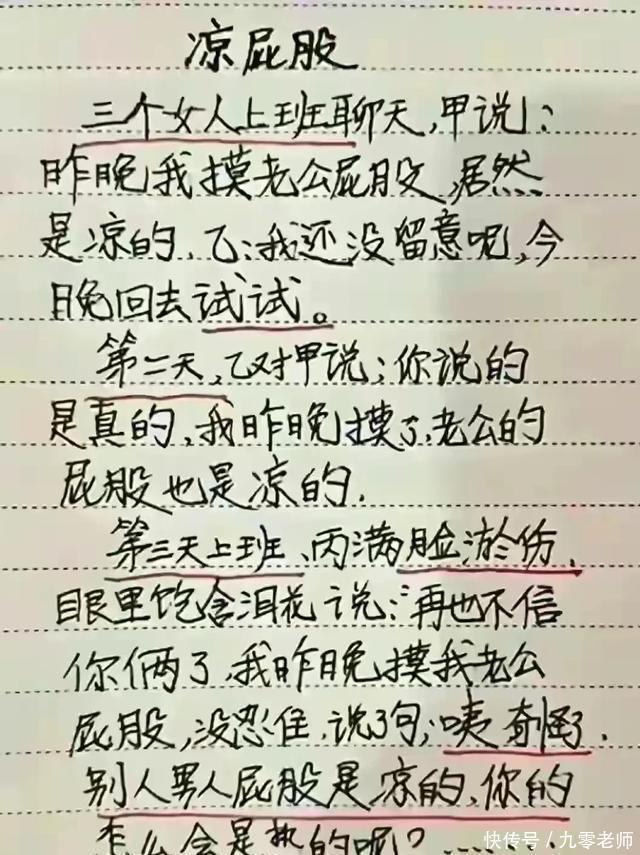 凉屁股
三个女人上班聊天,甲说:
昨晚我摸老公屁股,居然
是凉的,乙:我还没留意呢,今
晚回去试试。
第二天,乙对甲说:你说的
是真的,我昨晚摸了,老公的
屁股也是凉的.
第三天上班、丙满脸淤伤,
眼里饱含泪花说:再也不信
你俩了,我昨晚摸我老公
屁股,没忍住,说了句:咦奇怪了.
别人男人屁股是凉的,你的
怎么会是热的呢?......
快传号/九零老师